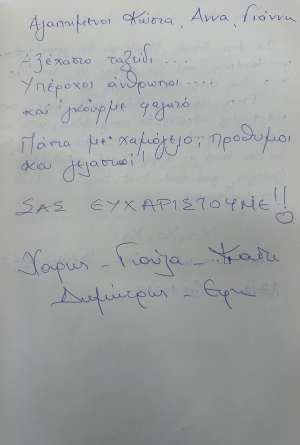 Αγαπημένοι Κώστα, Άννα, Γιάννη
Αξέχαστο ταξίδι ...
Υπέροχοι άνθρωποι ....
και γκουρμέ φαγητό
Πάντα με χαμόγελο, πρόθυμοι
και γελαστοί!!
ΣΑΣ ΕΥΧΑΡΙΣΤΟΥΜΕ!!
Χάρης - Γιούλα -
Δημήτρης - Εφη